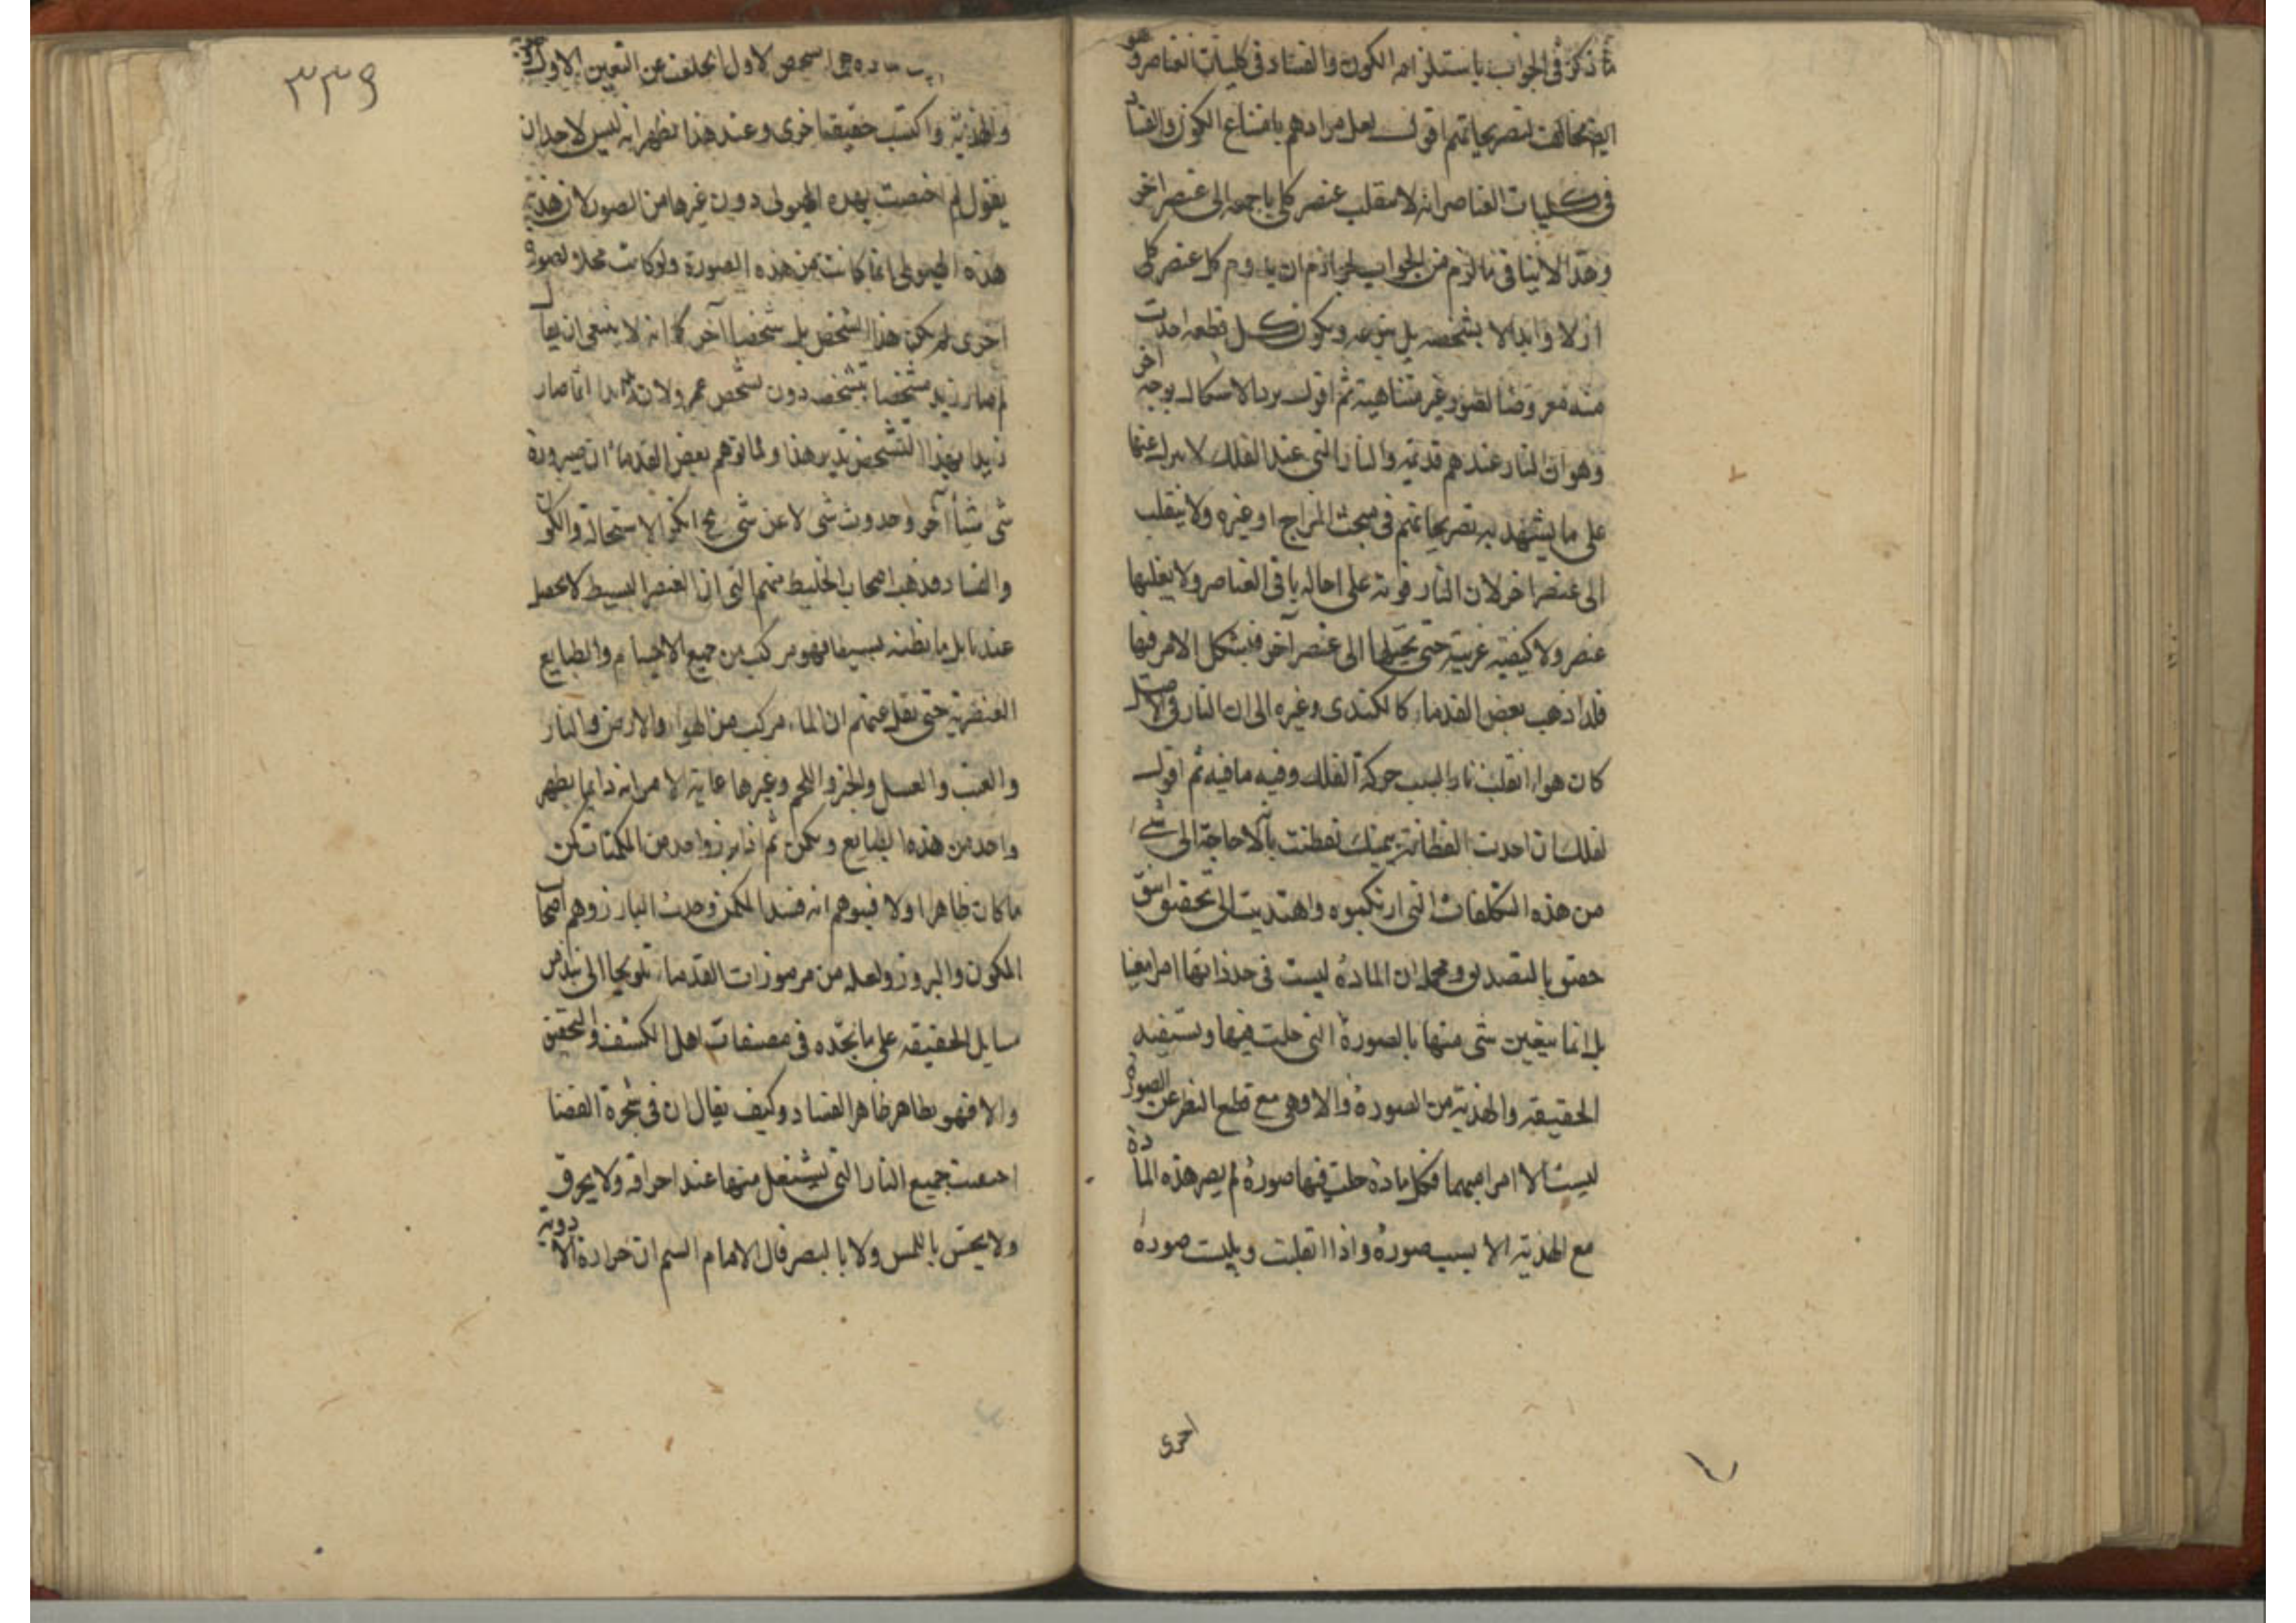 ما ذكر فى الجواب باستلزامه الكون والفساد فى كليات العناصر وهو
ايضا مخالف لتصريحاتهم اقول لعل مرادهم بامتناع الكون والفساد
فى كليات العناصر انه لا ينقلب عنصر كلى باجمعه الى عنصر اخر
وهذا لا ينافى ما لزم من الجواب لجواز ان يدوم كل عنصر كلى
ازلا وابدا لا بشخصه بل بنوعه ويكون كل قطعة احدث
منه معروضا لصور غير متناهية ثم اقول يرد الاشكال بوجه اخر
وهو ان النار عندهم قديمة والنار التى عند الفلك لا عنها
على ما يشهد به تصريحاتهم فى مبحث المزاج او غيره ولا ينقلب
الى عنصر اخر لان النار قوية على احالة باقى العناصر ولا يغلبها
عنصر ولا كيفية غريبة حتى يحيلها الى عنصر آخر فيشكل الامر فيها
فلذا ذهب بعض القدماء كالكندى وغيره الى ان النار فى الاصل
كان هواء انقلب نارا لسبب حركة الفلك وفيه ما فيه ثم اقول
لعلك ان احدت الفطانة بيمينك تفطنت بانه لا حاجة الى شئ
من هذه التكلفات التى ارتكبوه واهتديت الى تحقيق انيق
حقيق بالتصديق ومجمله ان المادة ليست فى حد ذاتها امرا معينا
بل انما يتعين شى منها بالصورة التى حلت فيها ويستفيد
الحقيقة والهذية من الصورة والا وهى مع قطع النظر عن الصورة
ليست الا امرا مبهما فكل مادة حلت فيها صورة لم يصر هذه المادة
مع الهذية الا بسبب صورة واذا انقلبت وبليت صورة
اخرى
٣٣٩
الاول انخلعت عن التعين الاول
والهذية واكتسب حقيقة اخرى وعند هذا يظهر انه ليس لاحد ان
يقول لم اختصت بهذه الهيولى دون غيرها من الصور لان هذية
هذه الهيولى انما كانت من هذه الصورة ولو كانت محلا لصورة
اخرى لم يكن هذا الشخص بل شخصا آخر كما انه لا ينبغى ان يقال
لم صار زيد متشخصا بتشخصه دون تشخص عمرو لان زيدا انما صار
زيدا بهذا التشخص تدبر هذا ولما توهم بعض القدماء ان صيرورة
شى شيأ آخر وحدوث شى لا عن شى مح انكر الاستحالة والكون
والفساد فذهب اصحاب الخليط منهم الى ان العنصر البسيط لا يحصل
عندنا بل ما نظنه بسيطا فهو مركب من جميع الاجسام والطبايع
العنصرية حتى نقل عنهم ان الماء مركب من الهواء والارض والنار
والعنب والعسل والخبز واللحم وغيرها غاية الامر انه دايما يظهر
واحد من هذه الطبايع ويكمن ثم اذا برز واحد من المكمنات كمن
ما كان ظاهرا اولا فيتوهم انه فسد المكمن وحدث البارز وهم اصحاب
الكمون والبروز ولعله من مرموزات القدماء تلويحا الى نبذ من
مسايل الحقيقة على ما نجده فى مصنفات اهل الكشف والتحقيق
والا فهو بظاهره ظاهر الفساد وكيف يقال ان فى شجرة الغضا
اجتمعت جميع النار التى يشتعل منها عند احراقه ولا يحرق
ولا يحس باللمس ولا بالبصر قال الامام السم ان حرارة الادوية